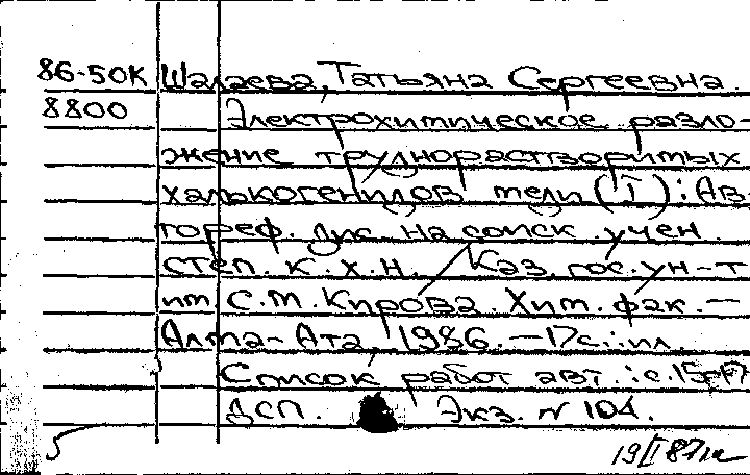 86-50К Шалаева, Татьяна Сергеевна.
8800 Электрохимическое разло-
жение труднорастворимых
халькогенидов меди (I): Ав-
тореф. дис. на соиск. учен.
степ. к.х.н. / Каз. гос. ун-т
им. С.М. Кирова. Хим. фак. —
Алма-Ата, 1986. — 17 с.: ил.
Список работ авт.: с. 15-17
ДСП. Экз. N 104.